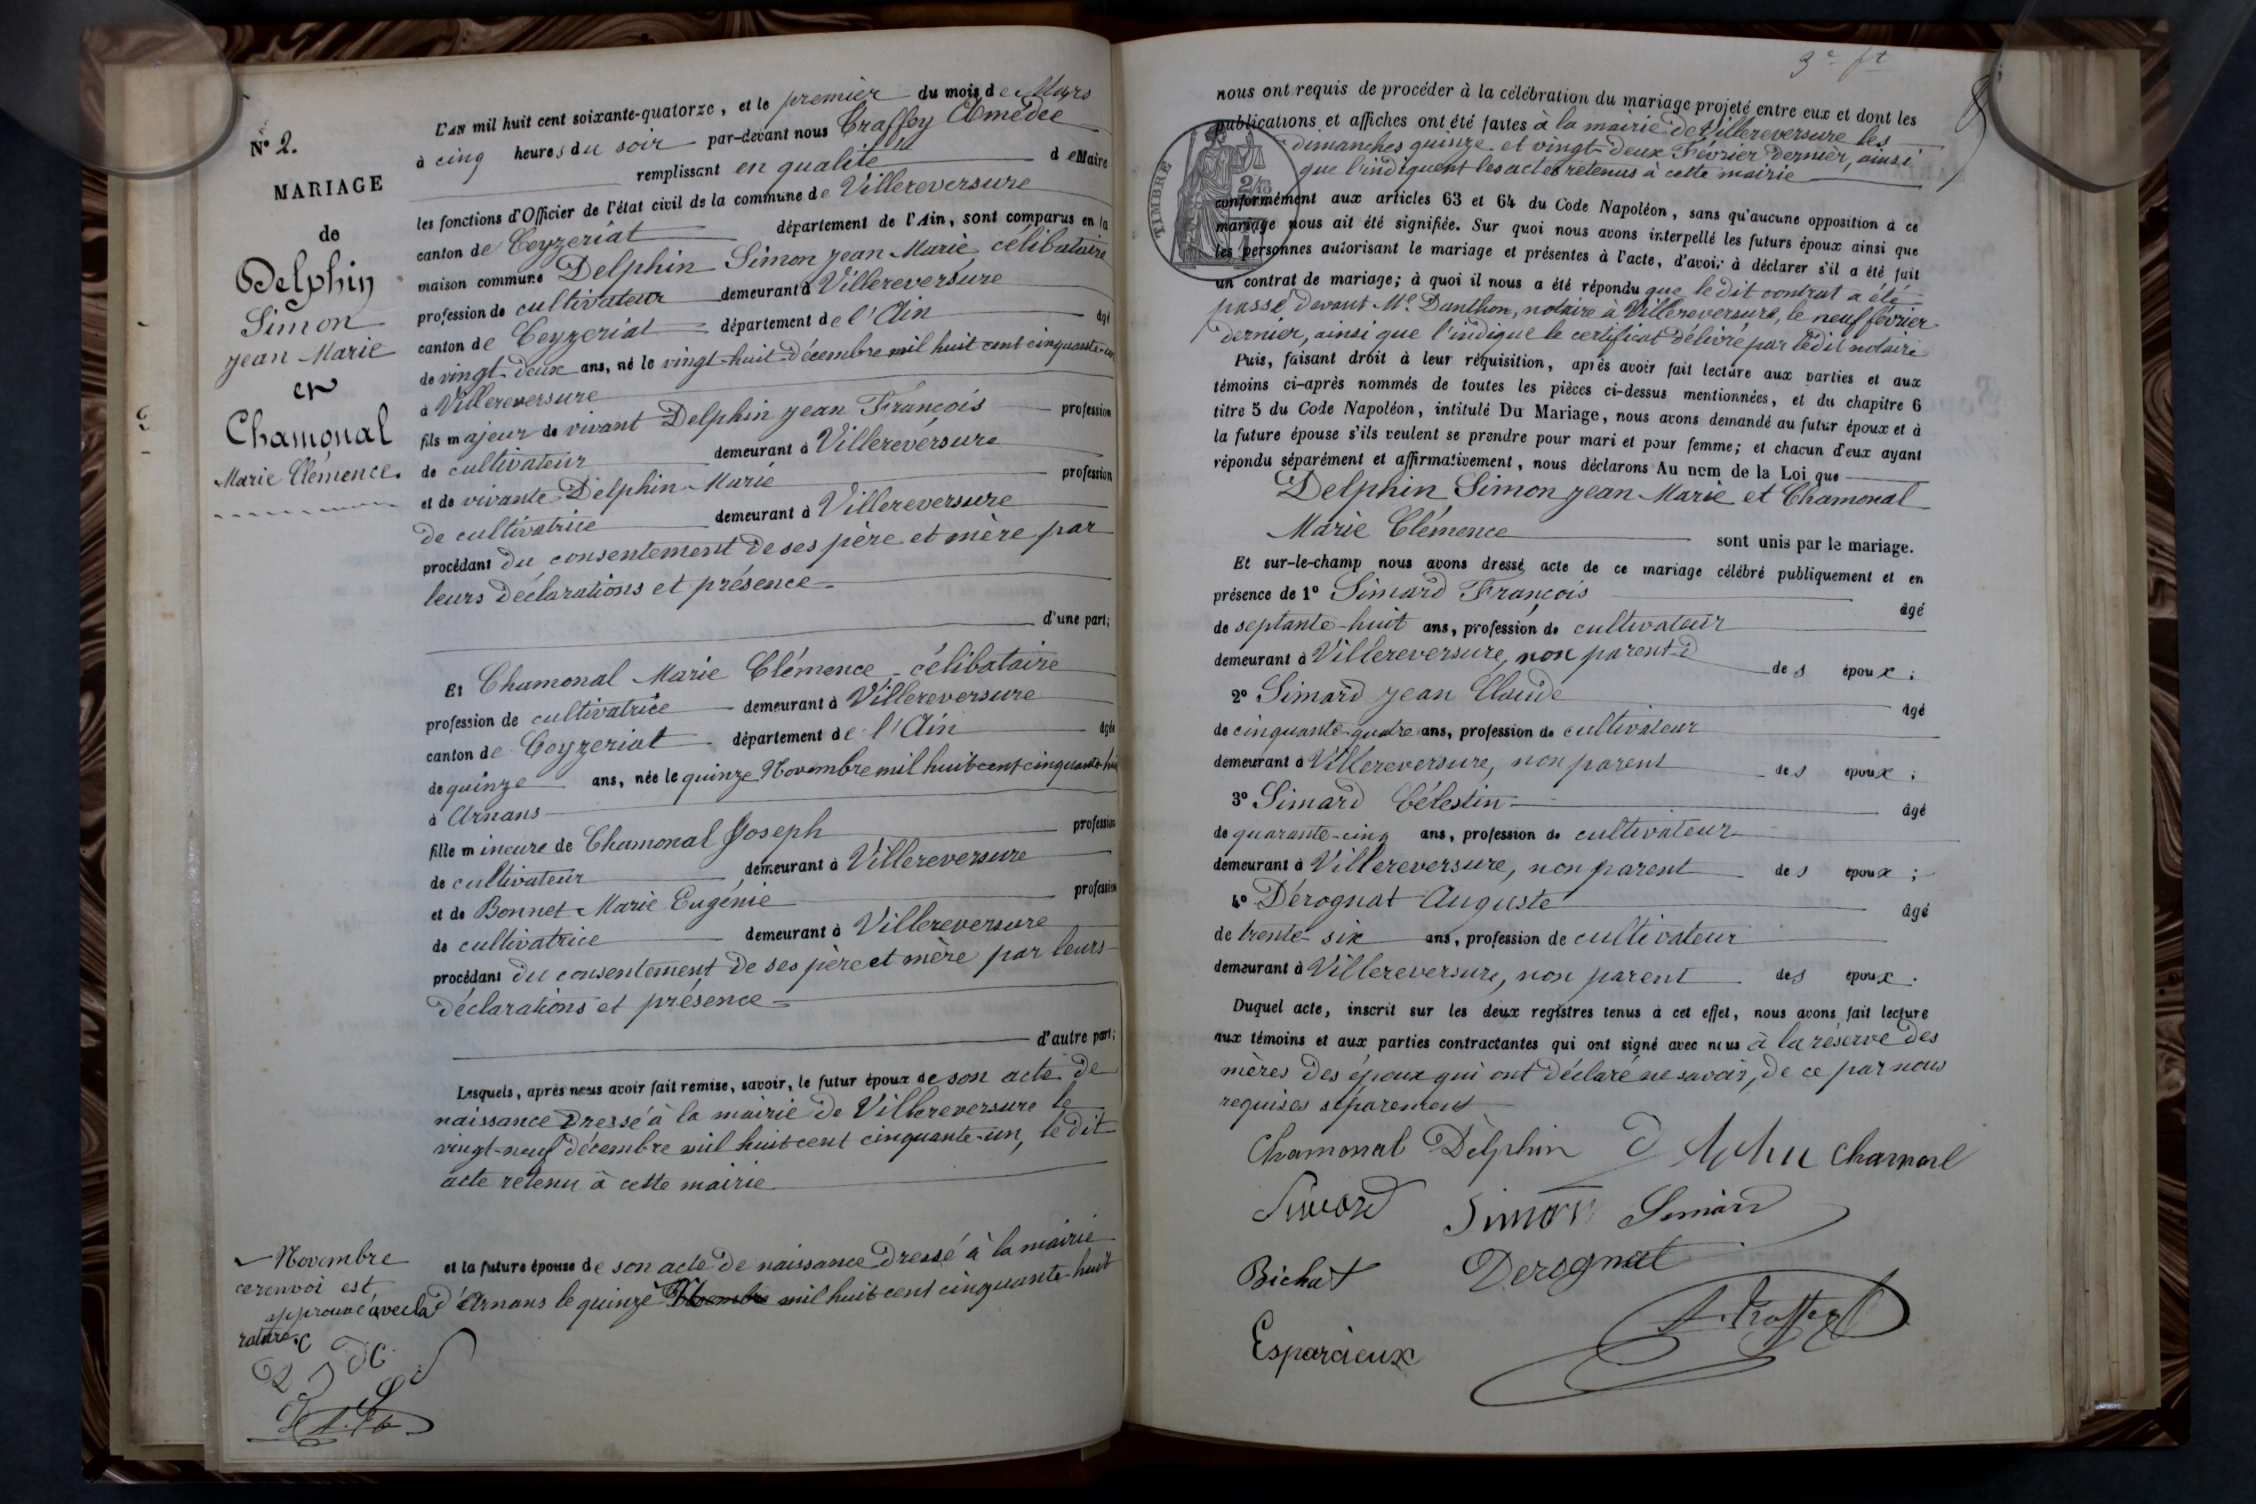 N° 2.
MARIAGE
de
Delphin
Simon
jean Marie
et
Chamonal
Marie Clémence.
L'AN mil huit cent soixante-quatorze, et le premier du mois de Mars
à cinq heures du soir par-devant nous Traffey Amédée
remplissant en qualité de Maire
les fonctions d'Officier de l'état civil de la commune de Villereversure
canton de Ceyzeriat département de l'Ain, sont comparus en la
maison commune Delphin Simon jean Marie, célibataire
profession de cultivateur demeurant à Villereversure
canton de Ceyzeriat département de l'Ain âgé
de vingt-deux ans, né le vingt-huit décembre mil huit cent cinquante-un
à Villereversure
fils majeur de vivant Delphin jean François profession
de cultivateur demeurant à Villereversure
et de vivante Delphin Marie profession
de cultivatrice demeurant à Villereversure
procédant du consentement de ses père et mère par
leurs déclarations et présence
d'une part;
Et Chamonal Marie Clémence, célibataire
profession de cultivatrice demeurant à Villereversure
canton de Ceyzeriat département de l'Ain âgée
de quinze ans, née le quinze Novembre mil huit cent cinquante-huit
à Arnans
fille mineure de Chamonal Joseph profession
de cultivateur demeurant à Villereversure
et de Bonnet Marie Eugénie profession
de cultivatrice demeurant à Villereversure
procédant du consentement de ses père et mère par leurs
déclarations et présence
d'autre part;
Lesquels, après nous avoir fait remise, savoir, le futur époux de son acte de
naissance dressé à la mairie de Villereversure le
vingt-neuf décembre mil huit cent cinquante-un, le dit
acte retenu à cette mairie
et la future épouse de son acte de naissance dressé à la mairie
d'Arnans le quinze mil huit cent cinquante-huit
Novembre
ce renvoi est
approuvé avec la
rature
3e ft
nous ont requis de procéder à la célébration du mariage projeté entre eux et dont les
publications et affiches ont été faites à la mairie de Villereversure les
dimanches quinze et vingt-deux Février dernier, ainsi
que l'indiquent les actes retenus à cette mairie
TIMBRE
2/10
conformément aux articles 63 et 64 du Code Napoléon, sans qu'aucune opposition à ce
mariage nous ait été signifiée. Sur quoi nous avons interpellé les futurs époux ainsi que
les personnes autorisant le mariage et présentes à l'acte, d'avoir à déclarer s'il a été fait
un contrat de mariage; à quoi il nous a été répondu que le dit contrat a été
passé devant Me Danthon, notaire à Villereversure, le neuf février
dernier, ainsi que l'indique le certificat délivré par le dit notaire
Puis, faisant droit à leur réquisition, après avoir fait lecture aux parties et aux
témoins ci-après nommés de toutes les pièces ci-dessus mentionnées, et du chapitre 6
titre 5 du Code Napoléon, intitulé Du Mariage, nous avons demandé au futur époux et à
la future épouse s'ils veulent se prendre pour mari et pour femme; et chacun d'eux ayant
répondu séparément et affirmativement, nous déclarons Au nom de la Loi que
Delphin Simon jean Marie et Chamonal
Marie Clémence sont unis par le mariage.
Et sur-le-champ nous avons dressé acte de ce mariage célébré publiquement et en
présence de 1° Simard François âgé
de septante-huit ans, profession de cultivateur
demeurant à Villereversure, non parent des époux;
2° Simard jean Claude âgé
de cinquante-quatre ans, profession de cultivateur
demeurant à Villereversure, non parent des époux;
3° Simard Célestin âgé
de quarante-cinq ans, profession de cultivateur
demeurant à Villereversure, non parent des époux;
4° Dérognat Auguste âgé
de trente-six ans, profession de cultivateur
demeurant à Villereversure, non parent des époux.
Duquel acte, inscrit sur les deux registres tenus à cet effet, nous avons fait lecture
aux témoins et aux parties contractantes qui ont signé avec nous à la réserve des
mères des époux qui ont déclaré ne savoir, de ce par nous
requises séparement
Chamonal Delphin Chamonal
Simard Simon Simard
Bichat Derognat
Esparcieux A. Traffey